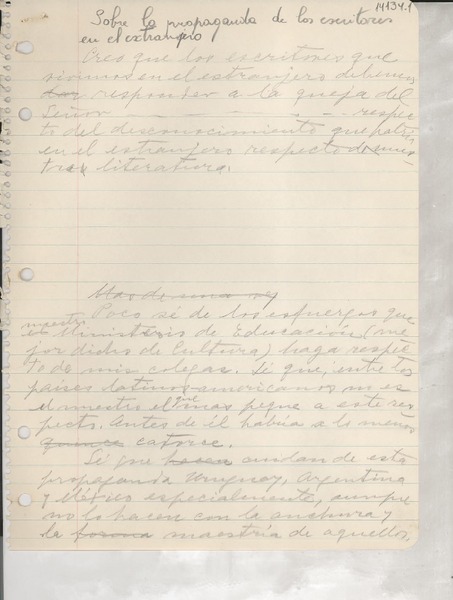 14134.1
Sobre la propaganda de los escritores
en el extranjero
Creo que los escritores que
vivimos en el extranjero debemos
responder a la queja del
Señor respec
to del desconocimiento que
en el extranjero respecto de nues
tra literatura.
Mas de una vez
Poco sé de los esfuerzos que
nuestro
el Ministerio de Educación (me
jor dicho de Cultura) haga respec
to de mis colegas. Sé que, entre los
países latino-americanos no es
el nuestro el que mas pegue a este res
pecto. Antes de él había a lo menos
quince catorce.
Sé que hacen cuidan de esta
propaganda Uruguay, Argentina
y México especialmente, aunque
no lo hacen con la anchura y
la maestría de aquellos,